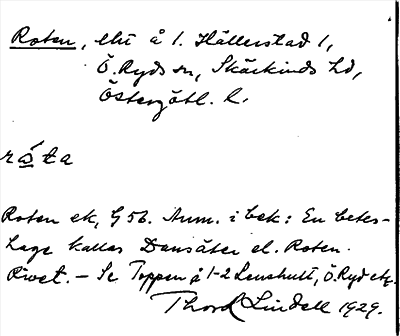 Roten, ehi å 1. Hällerstad 1,
Ö. Ryds sn, Skärkinds hd,
Östergötl. l.
råta
Roten ek, G 56. Anm. i bek: En betes-
hage kallas Dansäter el. Roten
Rivet. – Se Toppen å 1-2 Lenshult, Ö. Ryd etc.
Thord Lindell 1929.